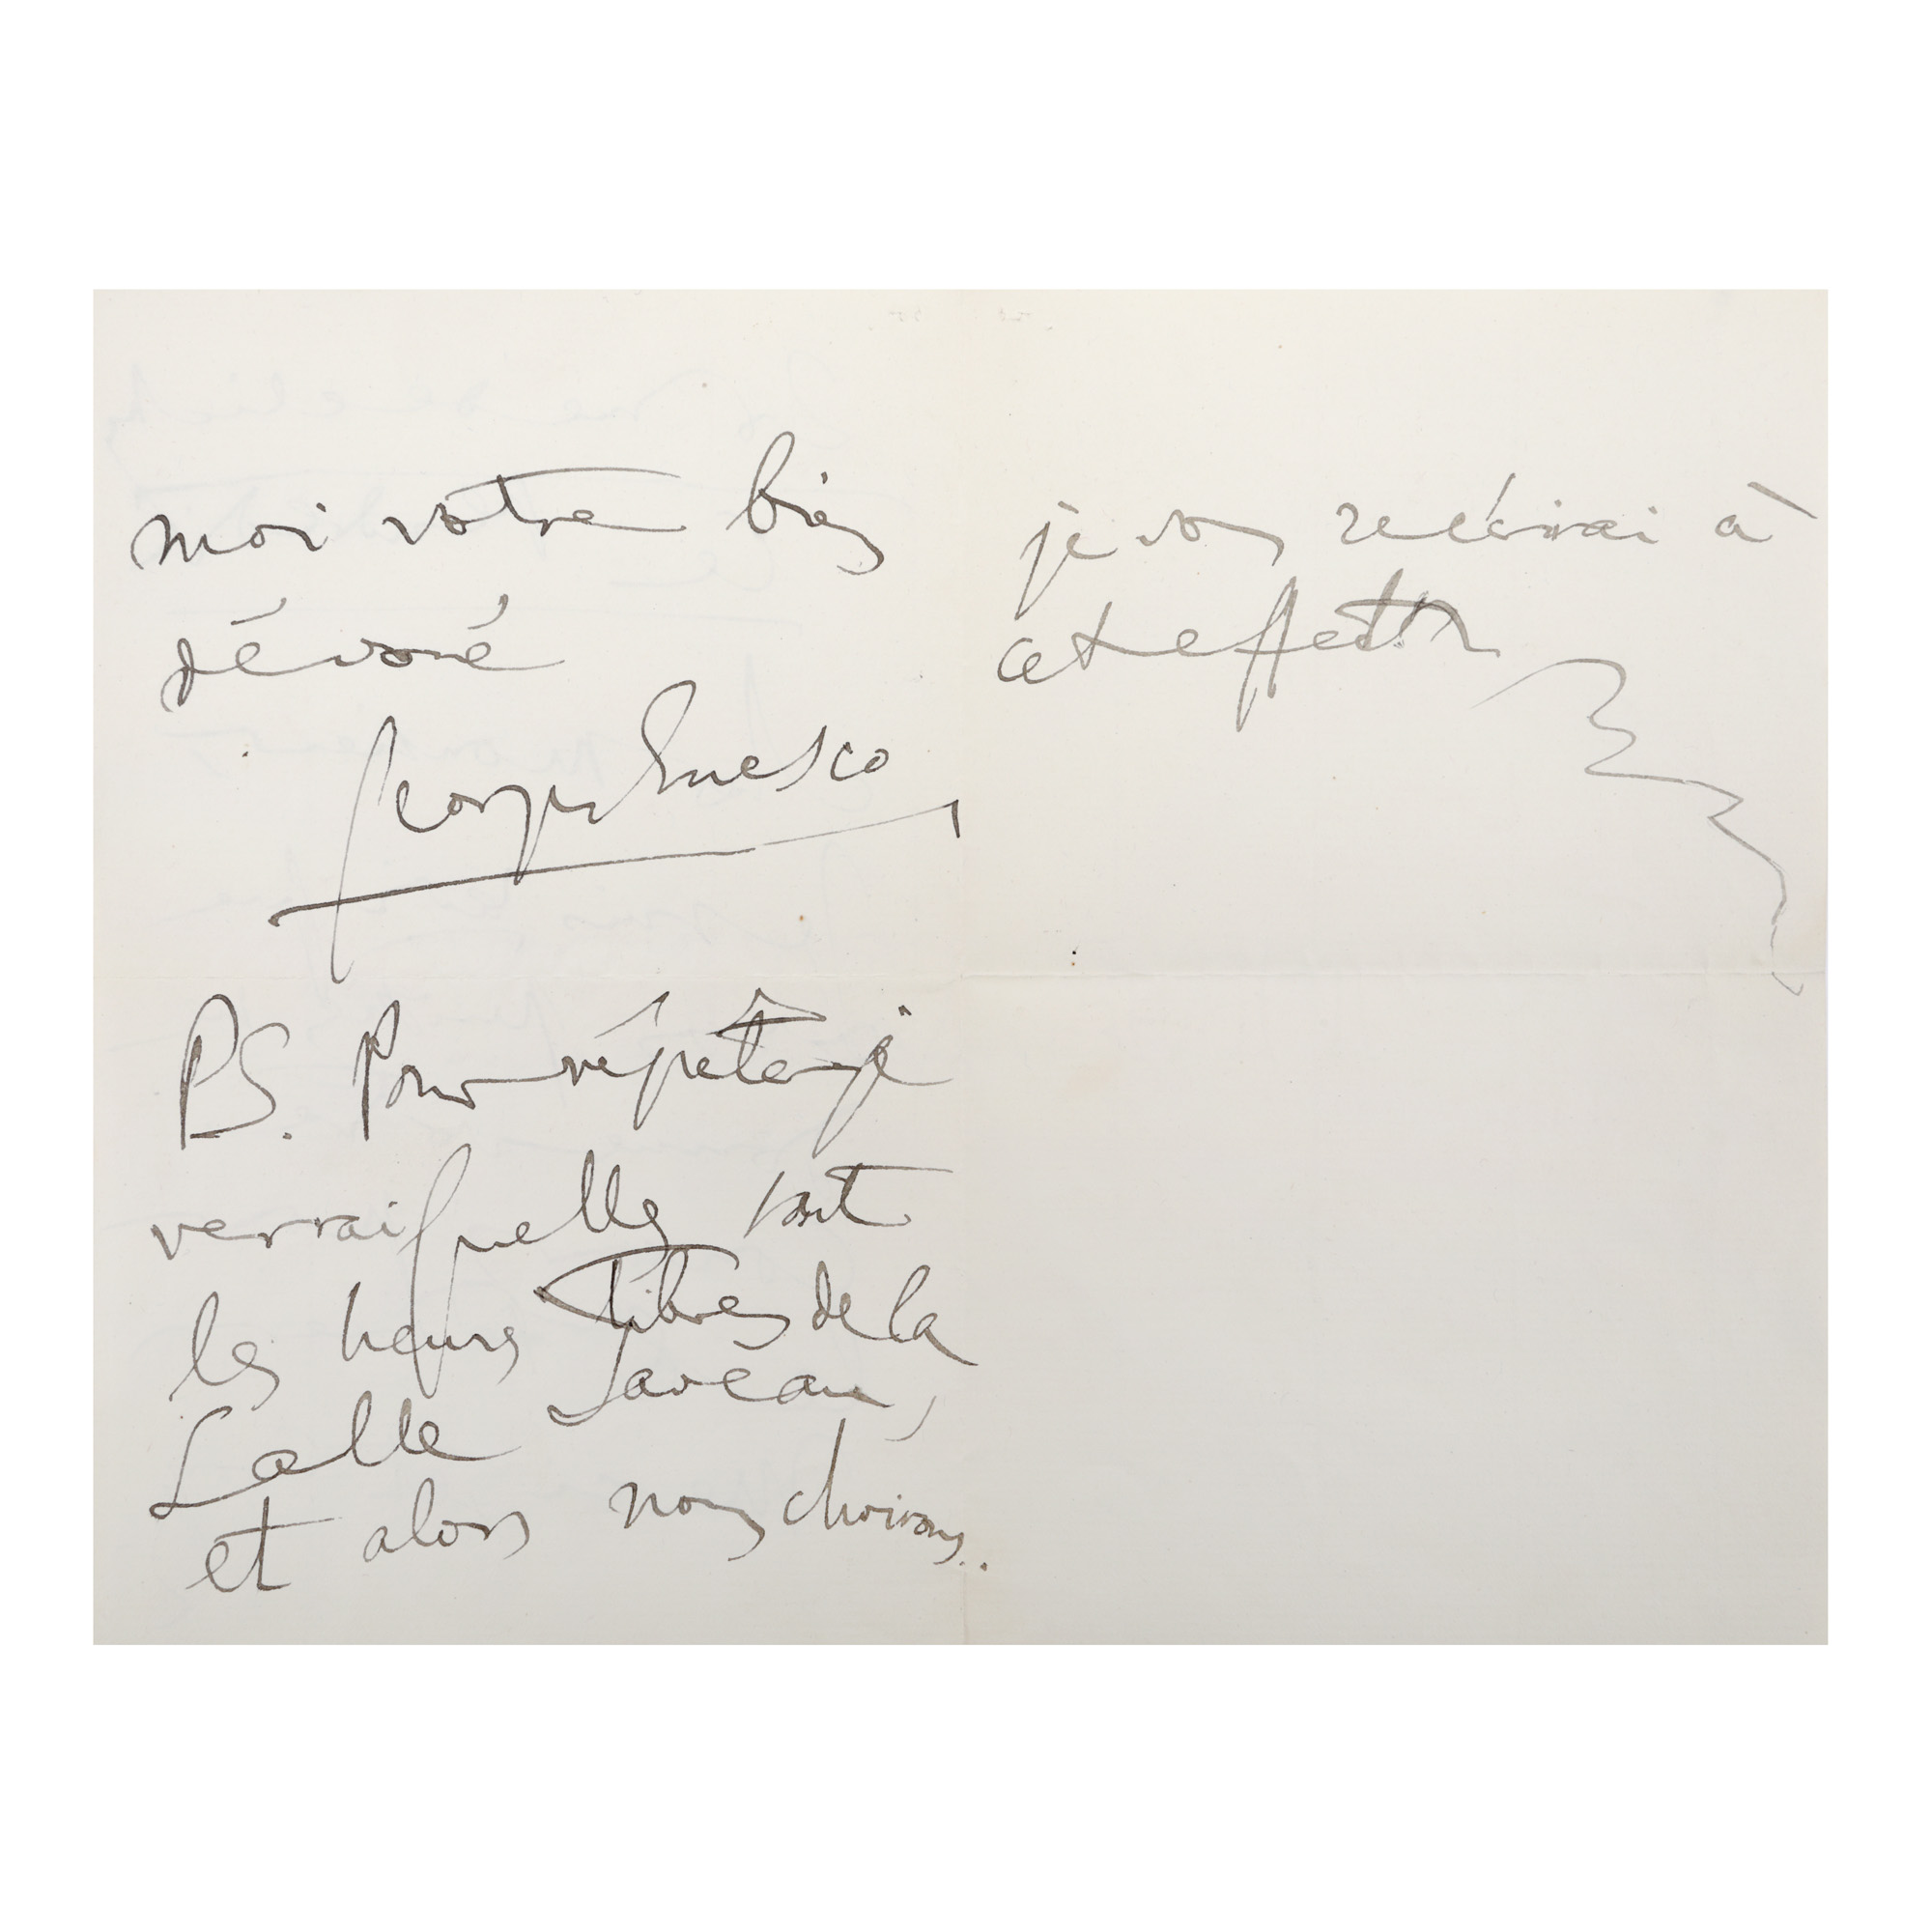 moi votre bien
dévoué
Georges Enesco
PS. Pour répéter je
verrai quelles sont
les heures libres de la
Salle Gaveau,
et alors nous choisirons..
je vous réécrirai à
cet effet